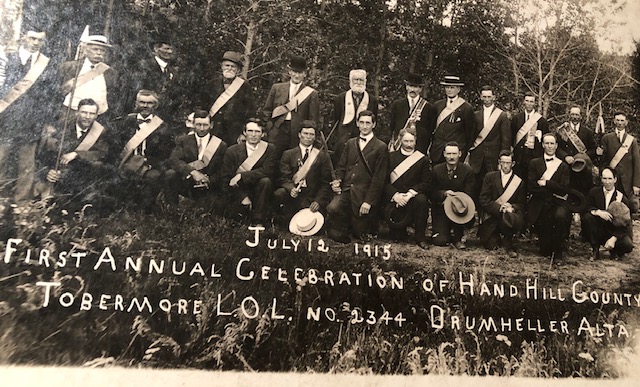 JULY 12 1915
FIRST ANNUAL CELEBRATION OF HAND HILL COUNTY
TOBERMORE L.O.L. NO. 2344 DRUMHELLER ALTA